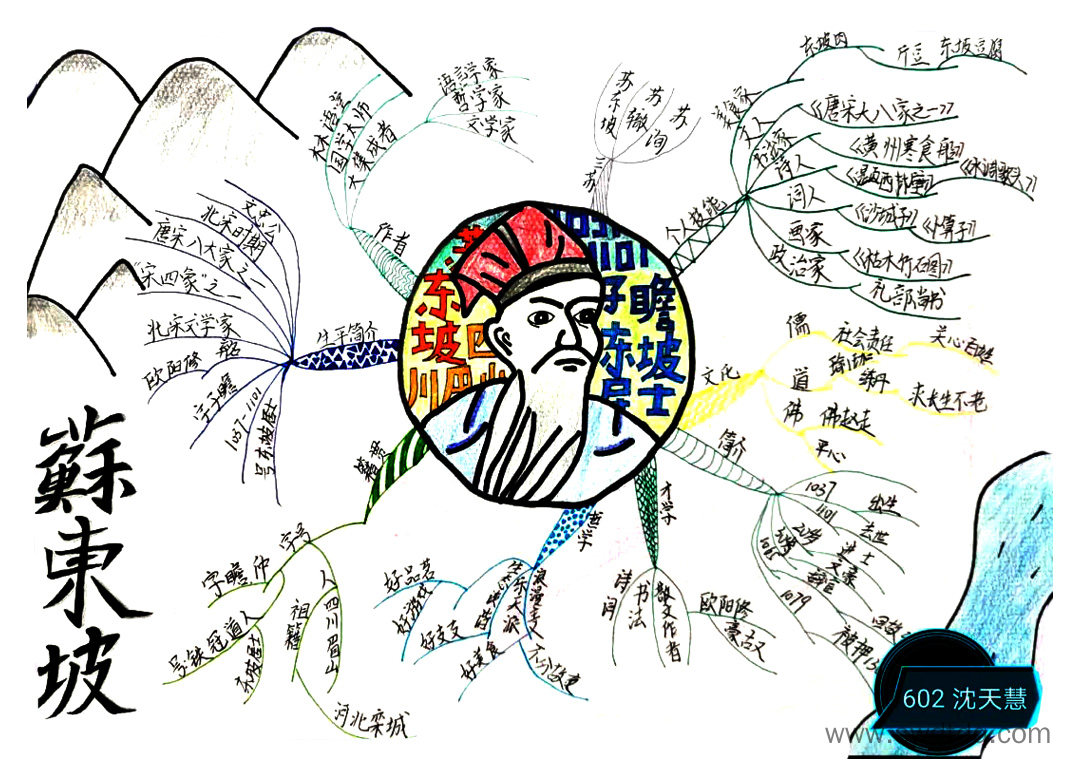 蘇東坡
作者
林语堂
国学大师
大集成者
语言学家
哲学家
文学家
三苏
苏东坡
苏辙
苏洵
个人技能
美食家
东坡肉
东坡豆腐
文人
《唐宋大八家之一》
书法家
《黄州寒食帖》
诗人
《题西林壁》
《水调歌头》
词人
《沙城子》
《卜算子》
画家
《枯木竹石图》
政治家
礼部尚书
文化
儒
社会责任
关心百姓
道
炼丹
求长生不老
佛
平心
简介
1037
出生
1101
去世
进士
1079
才学
诗词
书法
散文作者
欧阳修
哲学
好品茗
好游戏
好交友
好美食
生乐天派
籍贯
字号
字瞻仲
号铁冠道人
东坡居士
人
四川眉山
祖籍
河北栾城
生平简介
文忠公
北宋时期
唐宋八大家之一
"宋四家"之一
北宋文学家
欧阳修
字子瞻
1037-1101
号东坡居士
东坡
瞻坡士
602 沈天慧